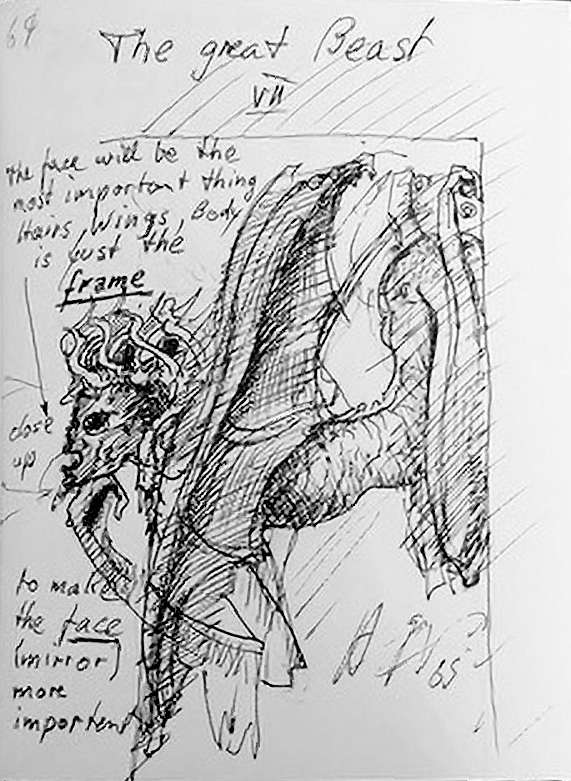 69
The great Beast
VII
the face will be the
most important thing
Hairs, Wings, Body
is just the
frame
close
up
to make
the face
(mirror)
more
important
65